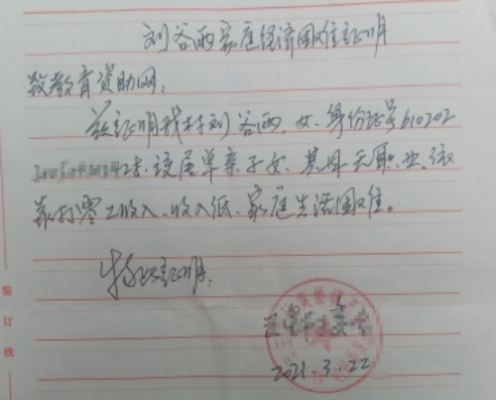 刘谷雨家庭经济困难证明
致教育资助网：
兹证明我村刘谷雨，女，身份证号610202
28，该居单亲子女，其母无职业，做
打零工收入，收入低，家庭生活困难。
特此证明。
2021.3.22
装订线